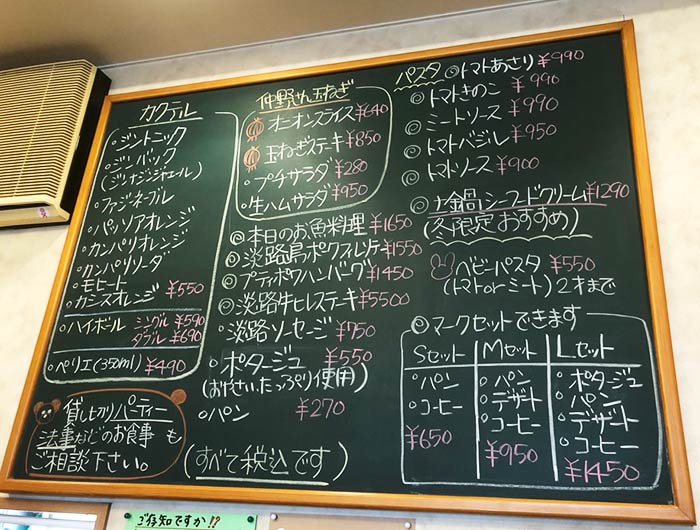 カクテル
・ジントニック
・ジンバック
(ジンナジンジャエール)
・ファジーネーブル
・パッソアオレンジ
・カンパリオレンジ
・カンパリソーダ
・モヒート
・カシスオレンジ ¥550
・ハイボール シングル ¥590
ダブル ¥690
・ペリエ(350ml) ¥490
貸し切りパーティー
法事などのお食事も
ご相談下さい。
仲野さん玉ねぎ
オニオンスライス ¥640
玉ねぎステーキ ¥850
・プチサラダ ¥280
・生ハムサラダ ¥950
◎本日のお魚料理 ¥1650
◎淡路島ポークフィレカツ ¥1550
◎プティポワハンバーグ ¥1450
◎淡路牛ヒレステーキ ¥5500
◎淡路ソーセージ ¥750
・ポタージュ ¥550
(おやさいたっぷり使用)
・パン ¥270
(すべて税込です)
パスタ ◎トマトあさり ¥990
・トマトきのこ ¥990
・ミートソース ¥990
・トマトバジル ¥950
・トマトソース ¥900
◎土鍋シーフードクリーム ¥1290
(冬限定おすすめ)
ベビーパスタ ¥550
(トマトorミート)2才まで
◎マークセットできます
Sセット
・パン
・コーヒー
¥650
Mセット
・パン
・デザート
・コーヒー
¥950
Lセット
・ポタージュ
・パン
・デザート
・コーヒー
¥1450
ご存知ですか!?